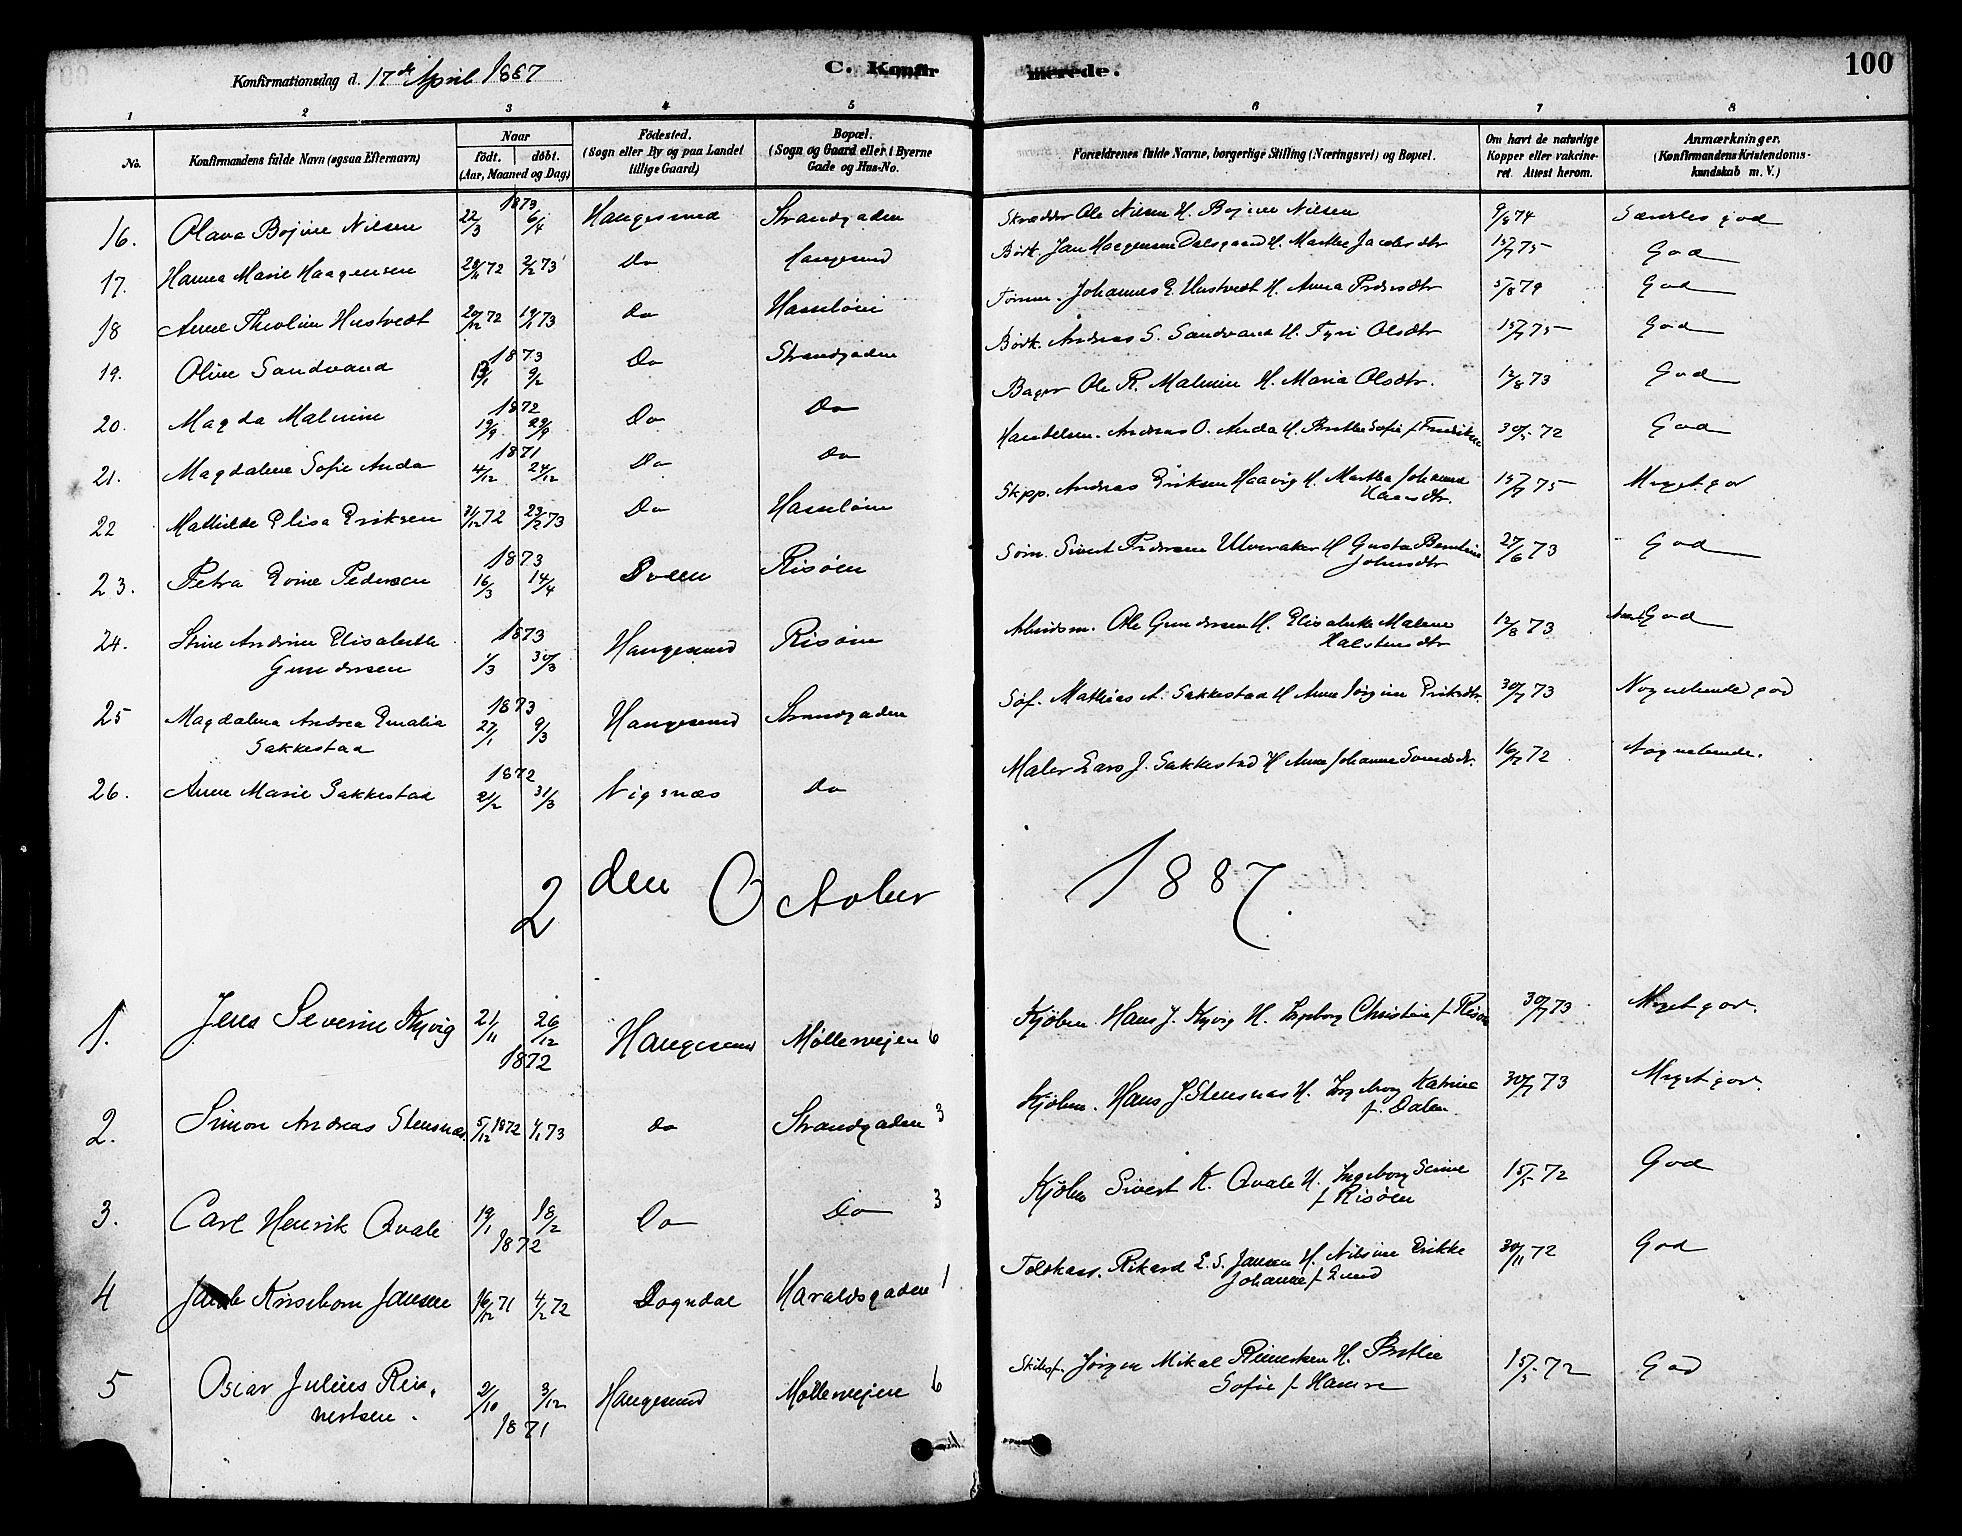 Konfirmationsdag d. 17de April 1887
C. Konfirmerede.
100
1 2 3 4 5 6 7 8
No.
Konfirmandens fulde Navn (ogsaa Efternavn)
Naar
födt. döbt.
(Aar, Maaned og Dag)
Födested.
(Sogn eller By og paa Landet
tillige Gaard)
Bopæl.
(Sogn og Gaard eller i Byerne
Gade og Hus-No.
Forældrenes fulde Navne, borgerlige Stilling (Næringsvei) og Bopæl.
Om havt de naturlige
Kopper eller vakcine-
ret. Attest herom.
Anmærkninger.
(Konfirmandens Kristendoms-
kundskab m. V.)
16. Olava Bojine Nilsen 1873 22/3 6/4 Haugesund Strandgaden Skrædder Ole Nilsen H. Bojine Nilsen 9/8 74 Særdeles god
17. Hanna Marie Haagensen 28/11 72 2/2 73 Do Haugesund Bødk. Jan Haagensen Dalsgaard H. Marthe Jacobsdtr 15/7 75 God
18 Anne Theoline Hustvedt 20/12 72 19/1 73 do Hasseløen Tømm. Johannes E Hustvedt H. Anna Pedersdtr 5/8 79 God
19. Oline Sandvand 1873 13/1 9/2 Do Strandgaden Bødk. Andreas S. Sandvand H. Tyri Olsdtr 15/7 75 God
20. Magda Malmine 1872 19/9 29/9 Do Do Bager Ole R. Malmin H. Maria Olsdtr. 12/8 73 God
21. Magdalene Sofie Anda 1871 4/12 24/12 Do Do Handelsm. Andreas O. Anda H. Berthe Sofie f Fredriksen 30/5 72 God
22 Mathilde Elisa Eriksen 31/12 72 23/2 73 Do Hasseløen Skipp. Andreas Eriksen Haavig H. Martha Johanna
15/7 75 Meget god
23. Petra Evine Pedersen 1873 16/3 14/4 Risøen Søm. Sivert Pedersen Ulveraker H Gusta Bentine
Johnsdtr 27/6 73 God
24. Stine Andrine Elisabeth
Gundersen 1873 1/3 30/3 Haugesund Risøen Arbeidsm. Ole Gundersen H. Elisabeth Malene
Halstensdtr 12/8 73 God
25 Magdalena Andrea Emalia
Sakkestad 1873 27/1 9/3 Haugesund Strandgaden Søf. Mathias A. Sakkestad H Anne Jørgine Eriksdtr. 30/7 73 Nogenlunde god
26. Anne Marie Sakkestad 1872 2/2 31/3 Vigsnæs do Maler Lars J. Sakkestad H Anne Johanne 16/7 72 Nogenlunde.
2den October 1887.
1. Jens Severin Kyvig 21/11 26/12 1872 Haugesund Møllerveien 6 Kjøbm. Hans J. Kyvig H. Ingeborg Christine f. Risøen 30/7 73 Meget god.
2. Simon Andreas Stensnæs 5/12 1872 4/1 73 do Strandgaden 3 Kjøbm. Hans J. Stensnæs H. Ingeborg Katrine
f. Dalen 30/7 73 Meget god.
3. Carl Henrik Qvale 19/1 18/2 1872 Do Do 3 Kjøbm Sivert K. Qvale H. Ingeborg Serine
f Risøen 15/5 72 God
4 Jakob Krisebom Jansen 16/12 71 4/2 72 Sogndal Haraldsgaden 1 Toldkass. Rikard L. S. Jansen H. Nilsine Erikke
Johanne f Lund 30/11 72 God
5 Oscar Julius Rei-
nertsen. 2/10 3/12 1871 Haugesund Møllerveien 6 Skibsf. Jørgen Mikal Reinertsen H. Berthe
Sofie f Hamre 15/5 72 God